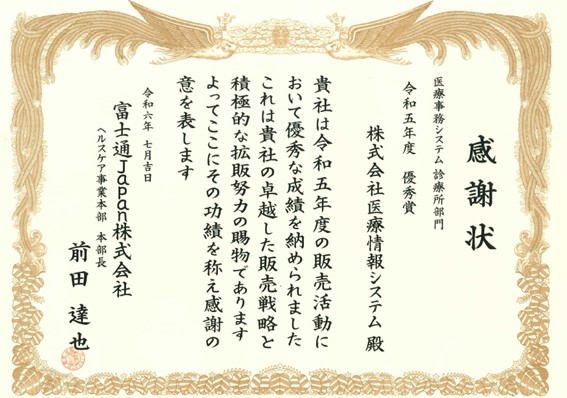 感謝状
医療事務システム 診療所部門
令和五年度 優秀賞
株式会社医療情報システム 殿
貴社は令和五年度の販売活動に
おいて優秀な成績を納められました
これは貴社の卓越した販売戦略と
積極的な拡販努力の賜物であります
よってここにその功績を称え感謝の
意を表します
令和六年 七月吉日
富士通Japan株式会社
ヘルスケア事業本部 本部長
前田 達也